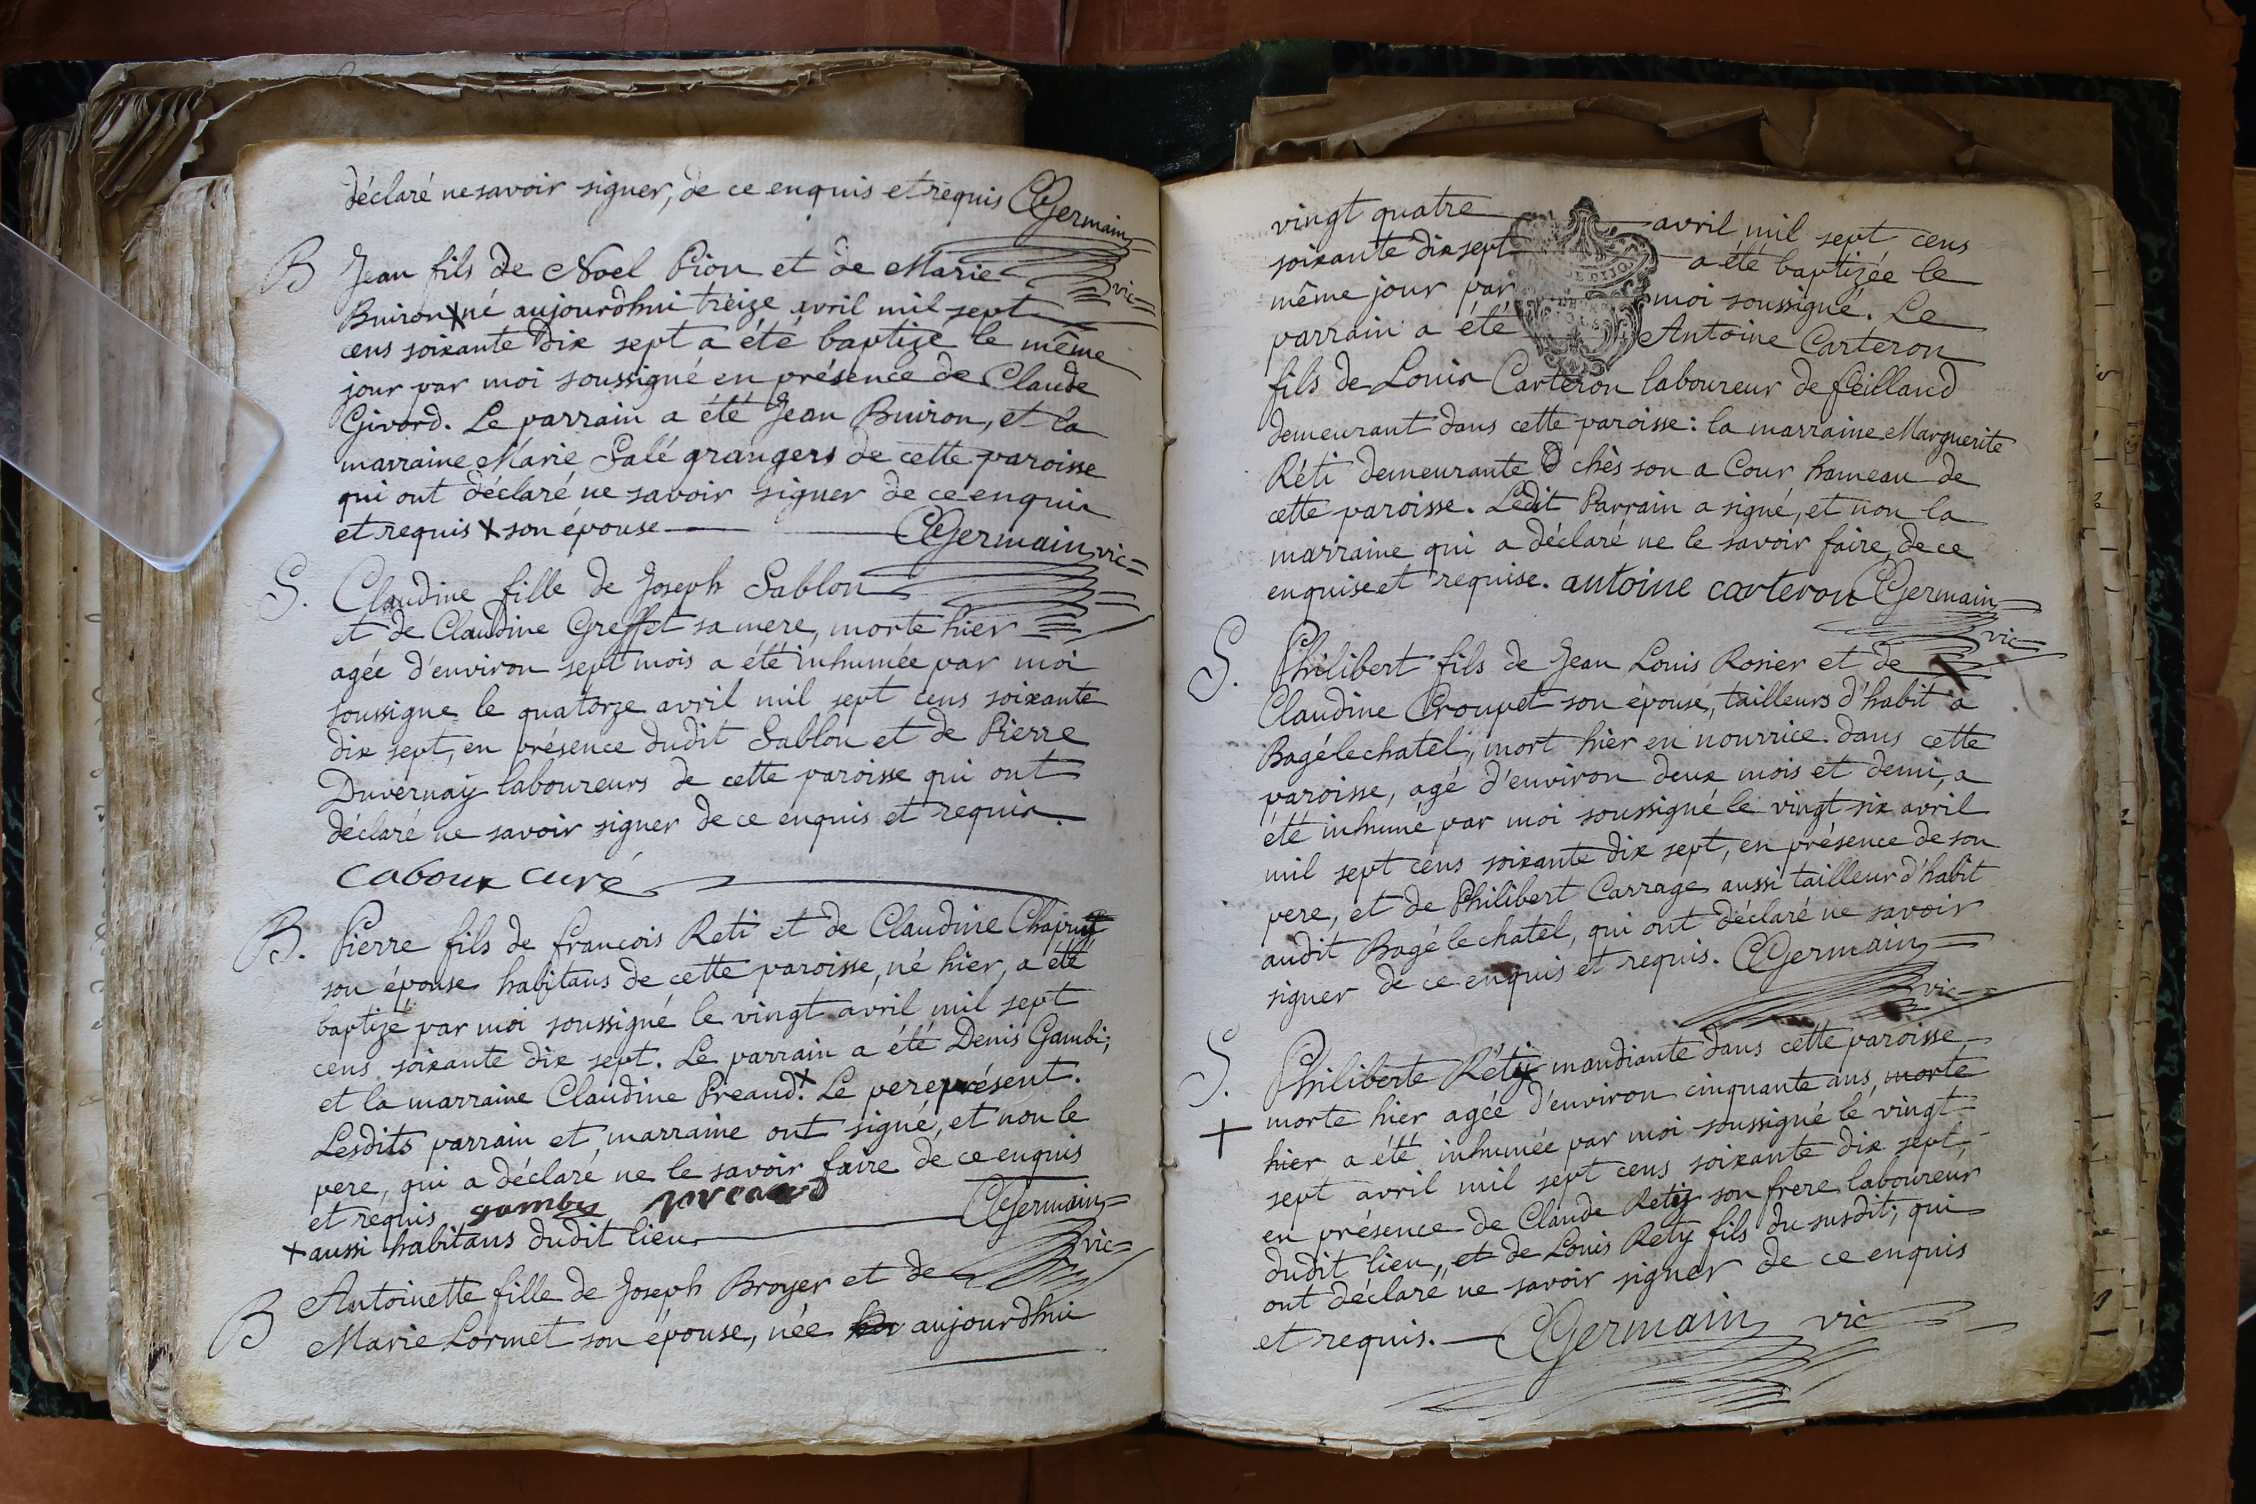 déclaré ne savoir signer, de ce enquis et requis CGermain
vic
B Jean fils de Noel Pion et de Marie
Buiron x né aujourdhui treize avril mil sept
cens soixante dix sept a été baptizé le même
jour par moi soussigné en présence de Claude
Givord. Le parrain a été Jean Buiron, et la
marraine Marie Salé grangers de cette paroisse
qui ont déclaré ne savoir signer de ce enquis
et requis x son épouse CGermain vic
S. Claudine fille de Joseph Sablon
et de Claudine Greffet sa mere, morte hier
agée d'environ sept mois a été inhumée par moi
soussigné le quatorze avril mil sept cens soixante
dix sept, en présence dudit Sablon et de Pierre
Duvernay laboureurs de cette paroisse qui ont
déclaré ne savoir signer de ce enquis et requis.
caboux curé
B. Pierre fils de francois Reti et de Claudine
son épouse habitans de cette paroisse, né hier, a été
baptizé par moi soussigné le vingt avril mil sept
cens soixante dix sept. Le parrain a été Denis Gambi;
et la marraine Claudine Preaud.x Le pere présent.
Lesdits parrain et marraine ont signé, et non le
pere, qui a déclaré ne le savoir faire de ce enquis
et requis gamby preaud CGermain
x aussi habitans dudit lieu vic
B Antoinette fille de Joseph Broyer et de
Marie Lormet son épouse, née aujourdhui
vingt quatre avril mil sept cens
soixante dix sept a été baptizée le
même jour par moi soussigné. Le
parrain a été Antoine Carteron
fils de Louis Carteron laboureur de feilland
demeurant dans cette paroisse: la marraine Marguerite
Réti demeurante chès son a Cour hameau de
cette paroisse. Ledit Parrain a signé, et non la
marraine qui a déclaré ne le savoir faire, de ce
enquise et requise. antoine carteron CGermain
vic
S. Philibert fils de Jean Louis Rosier et de
Claudine Croupet son épouse, tailleurs d'habit a
Bagélechatel, mort hier en nourrice dans cette
paroisse, agé d'environ deux mois et demi, a
été inhumé par moi soussigné le vingt six avril
mil sept cens soixante dix sept, en présence de son
pere, et de Philibert Carrage aussi tailleur d'habit
audit Bagélechatel, qui ont déclaré ne savoir
signer de ce enquis et requis. CGermain
vic
S. Philiberte Réty mandiante dans cette paroisse
+ morte hier agée d'environ cinquante ans, morte
hier a été inhumée par moi soussigné le vingt
sept avril mil sept cens soixante dix sept,
en présence de Claude Rety son frere laboureur
dudit lieu, et de Louis Rety fils du susdit; qui
ont déclaré ne savoir signer de ce enquis
et requis. CGermain vic